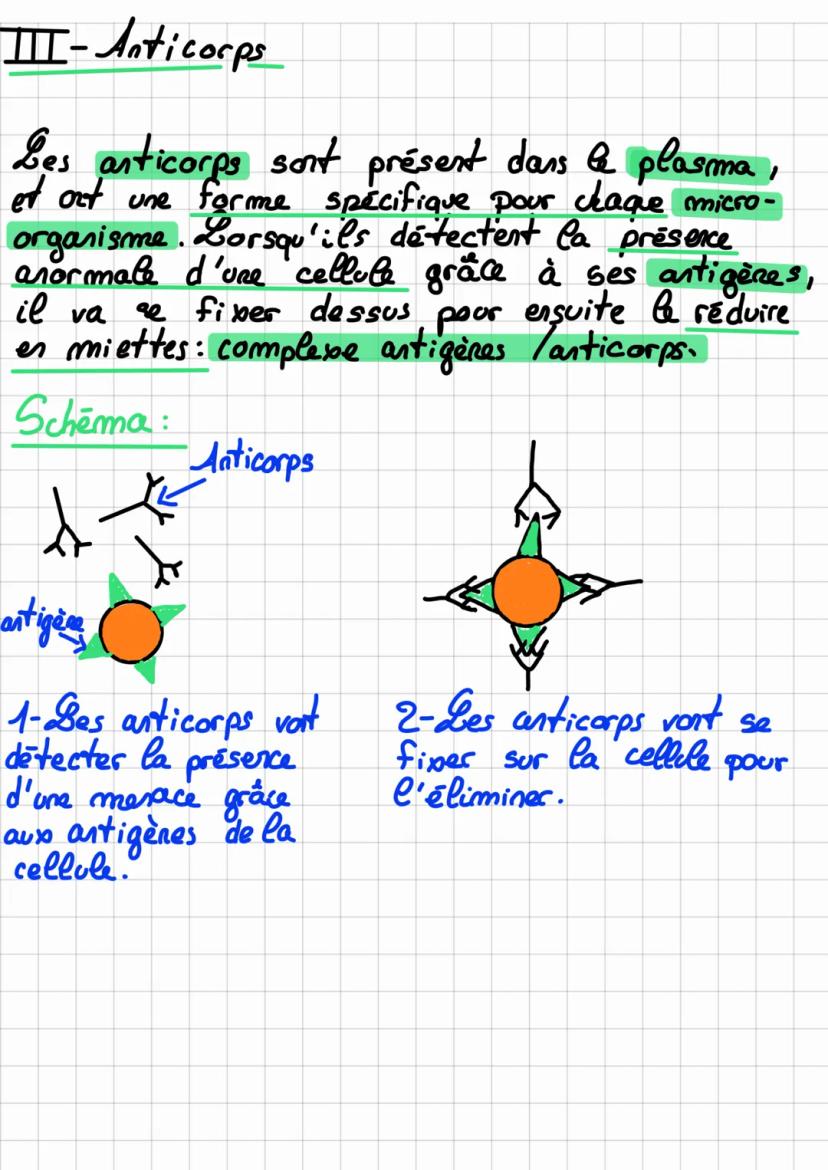 III - Anticorps
Les anticorps sont présent dans le plasma,
et ont une forme spécifique pour chaque micro-
organisme. Lorsqu'ils détectent la présence
anormale d'une cellule grâce à ses antigènes,
il va se fixer dessus pour ensuite le réduire
en miettes : complexe antigènes /anticorps.
Schéma :
Anticorps
antigène
1-Les anticorps vont
détecter la présence
d'une menace grâce
aux antigènes de la
cellule.
2-Les anticorps vont se
fixer sur la cellule pour
l'éliminer.